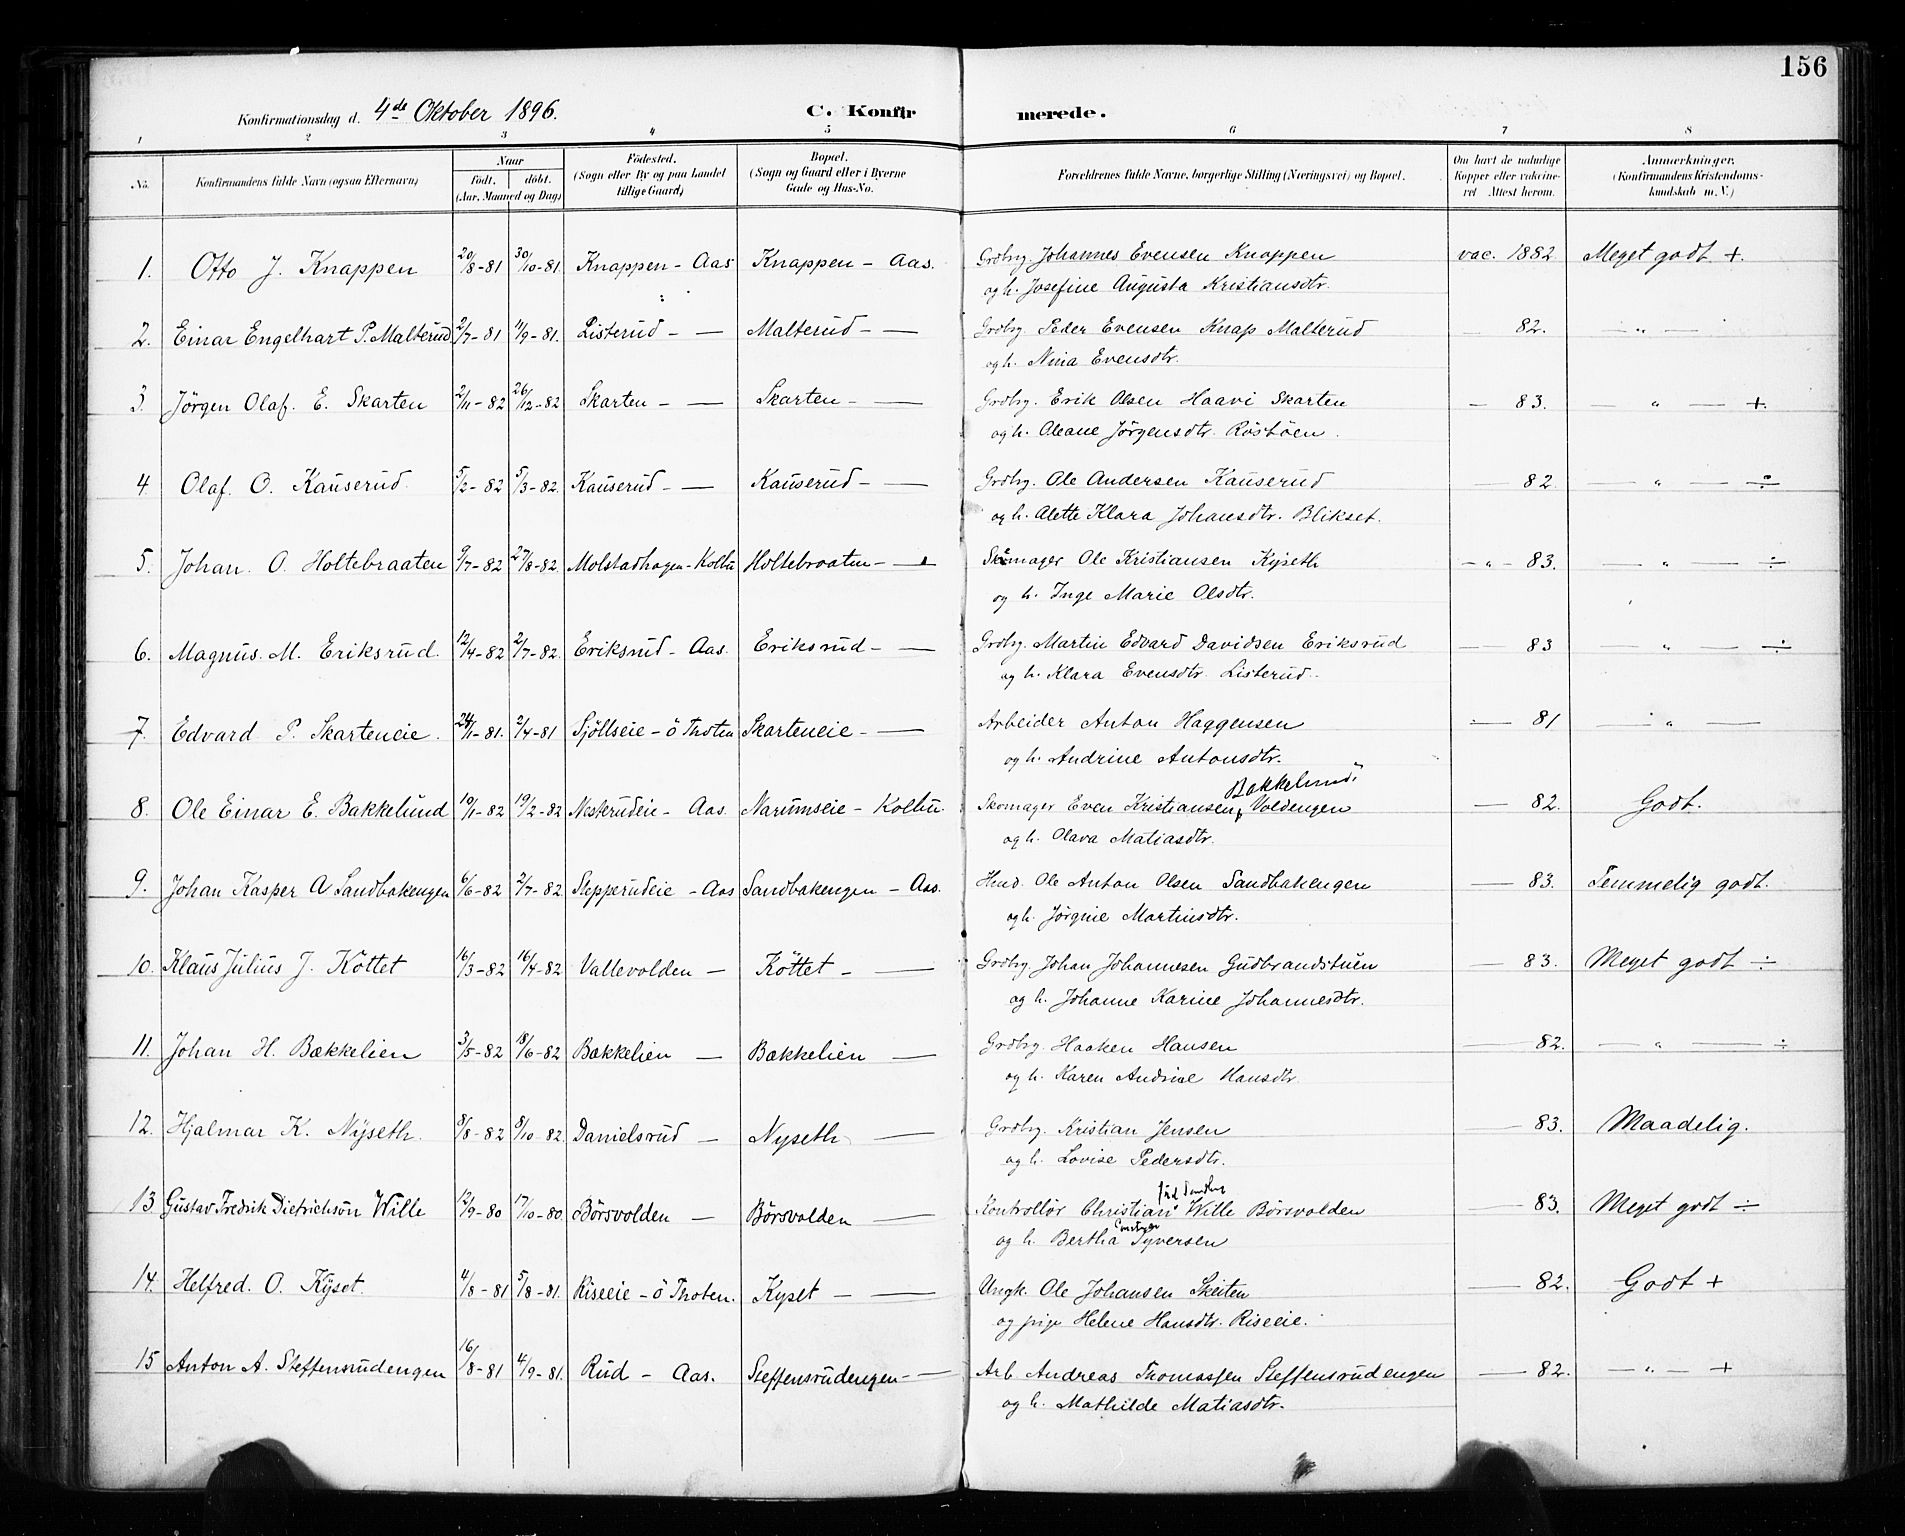 156
Konfirmationsdag d. 4de Oktober 1896. C. Konfir merede.
1 2 3 4 5 6 7 8
No. Konfirmandens fulde Navn (ogsaa Efternavn) Naar født, døbt. (Aar, Maaned og Dag) Fødested. (Sogn eller By og paa Landet tillige Gaard) Bopæl. (Sogn og Gaard eller i Byerne Gade og Hus-No. Forældrenes fulde Navne, borgerlige Stilling (Næringsvei) og Bopæl. Om havt de naturlige Kopper eller vaccineret Attest herom. Anmærkninger. (Konfirmandens Kristendomskundskab m. V.)
1. Otto J. Knappen 20/8-81 30/10-81. Knappen - Aas Knappen - Aas. Grdbrg. Johannes Evensen Knappen vac. 1882 Meget godt +.
og h. Josefine Augusta Kristiansdtr.
2. Einar Engelhart P. Malterud 2/7-81 11/9-81. Listerud - — Malterud - — Grdbrg. Peder Evensen Knap Malterud — 82. — " —
og h. Nina Evensdtr.
3. Jörgen Olaf. E. Skarten 2/11-82 26/12-82 Skarten - — Skarten - — Grdbrg. Erik Olsen Haavi Skarten — 83. — " — +.
og h. Oleane Jörgensdtr. Röstöen.
4. Olaf. O. Kauserud. 5/2-82 5/3-82. Kauserud - — Kauserud - — Grdbrg. Ole Andersen Kauserud — 82. — " — ÷
og h. Alette Klara Johansdtr. Blikset.
5. Johan. O. Holtebraaten 9/7-82 27/8-82. Molstadhagen - Kolbu Holtebraaten - — Skomager Ole Kristiansen Kyseth - " - 83. — " — ÷
og h. Inge Marie Olsdtr.
6. Magnus. M. Eriksrud. 12/4-82 2/7-82. Eriksrud - Aas. Eriksrud - — Grdbrg. Martin Edvard Davidsen Eriksrud — 83 — " — ÷
og h. Klara Evensdtr. Listerud.
7. Edvard P. Skarteneie. 24/1-81. 2/4-81 Sjöllseie - ö Thoten Skarteneie - — Arbeider Anton Haggensen — 81 — " —
og h. Andrine Antonsdtr.
Bakkelund
8. Ole Einar E. Bakkelund 10/1-82 19/2-82 Neskrudeie - Aas. Narumseie - Kolbu. Skomager Even Kristiansen Voldengen — 82. Godt.
og h. Olava Matiasdtr.
9. Johan Kasper A Sandbakengen 6/6-82 2/7-82. Stepperudeie - Aas Sandbakengen - Aas. Hmd. Ole Anton Olsen Sandbakengen — 83. Temmelig godt.
og h. Jörgine Martinsdtr.
10. Klaus Julius J. Köttet 16/3-82 16/4-82 Vallevolden - Köttet - — Grdbrg Johan Johannesen Gudbrandstuen — 83. Meget godt ÷
og h. Johanne Karine Johannesdtr.
11. Johan H. Bækkelien 3/5-82 18/6-82 Bækkelien — Bækkelien — Grdbrg. Haaken Hansen — 82. — " — ÷
og h. Karen Andrine Hansdtr
12. Hjalmar K. Nyseth. 8/8-82 8/10-82. Danielsrud - Nyseth — Grdbrg. Kristian Jensen — 83. Maadelig.
og h. Lovise Pedersdtr.
13 Gustav Fredrik Dietrichson Wille 12/9-80 17/10-80. Börsvolden — Börsvolden — Kontrollör Christian Wille Börsvolden — 83. Meget godt ÷
og h. Bertha Syversen
14. Helfred. O. Kyset. 4/8-81 5/8-81. Riseeie - ö Thoten. Kyset — — Ungk. Ole Johansen Skeiten — 82. Godt +
og pige Helene Hansdtr. Riseeie.
15 Anton A. Steffensrudengen 16/8-81 4/9-81. Rud - Aas. Steffensrudengen - — Arb Andreas Thomassen Steffensrudengen — 82. — " — +
og h. Mathilde Matiasdtr.